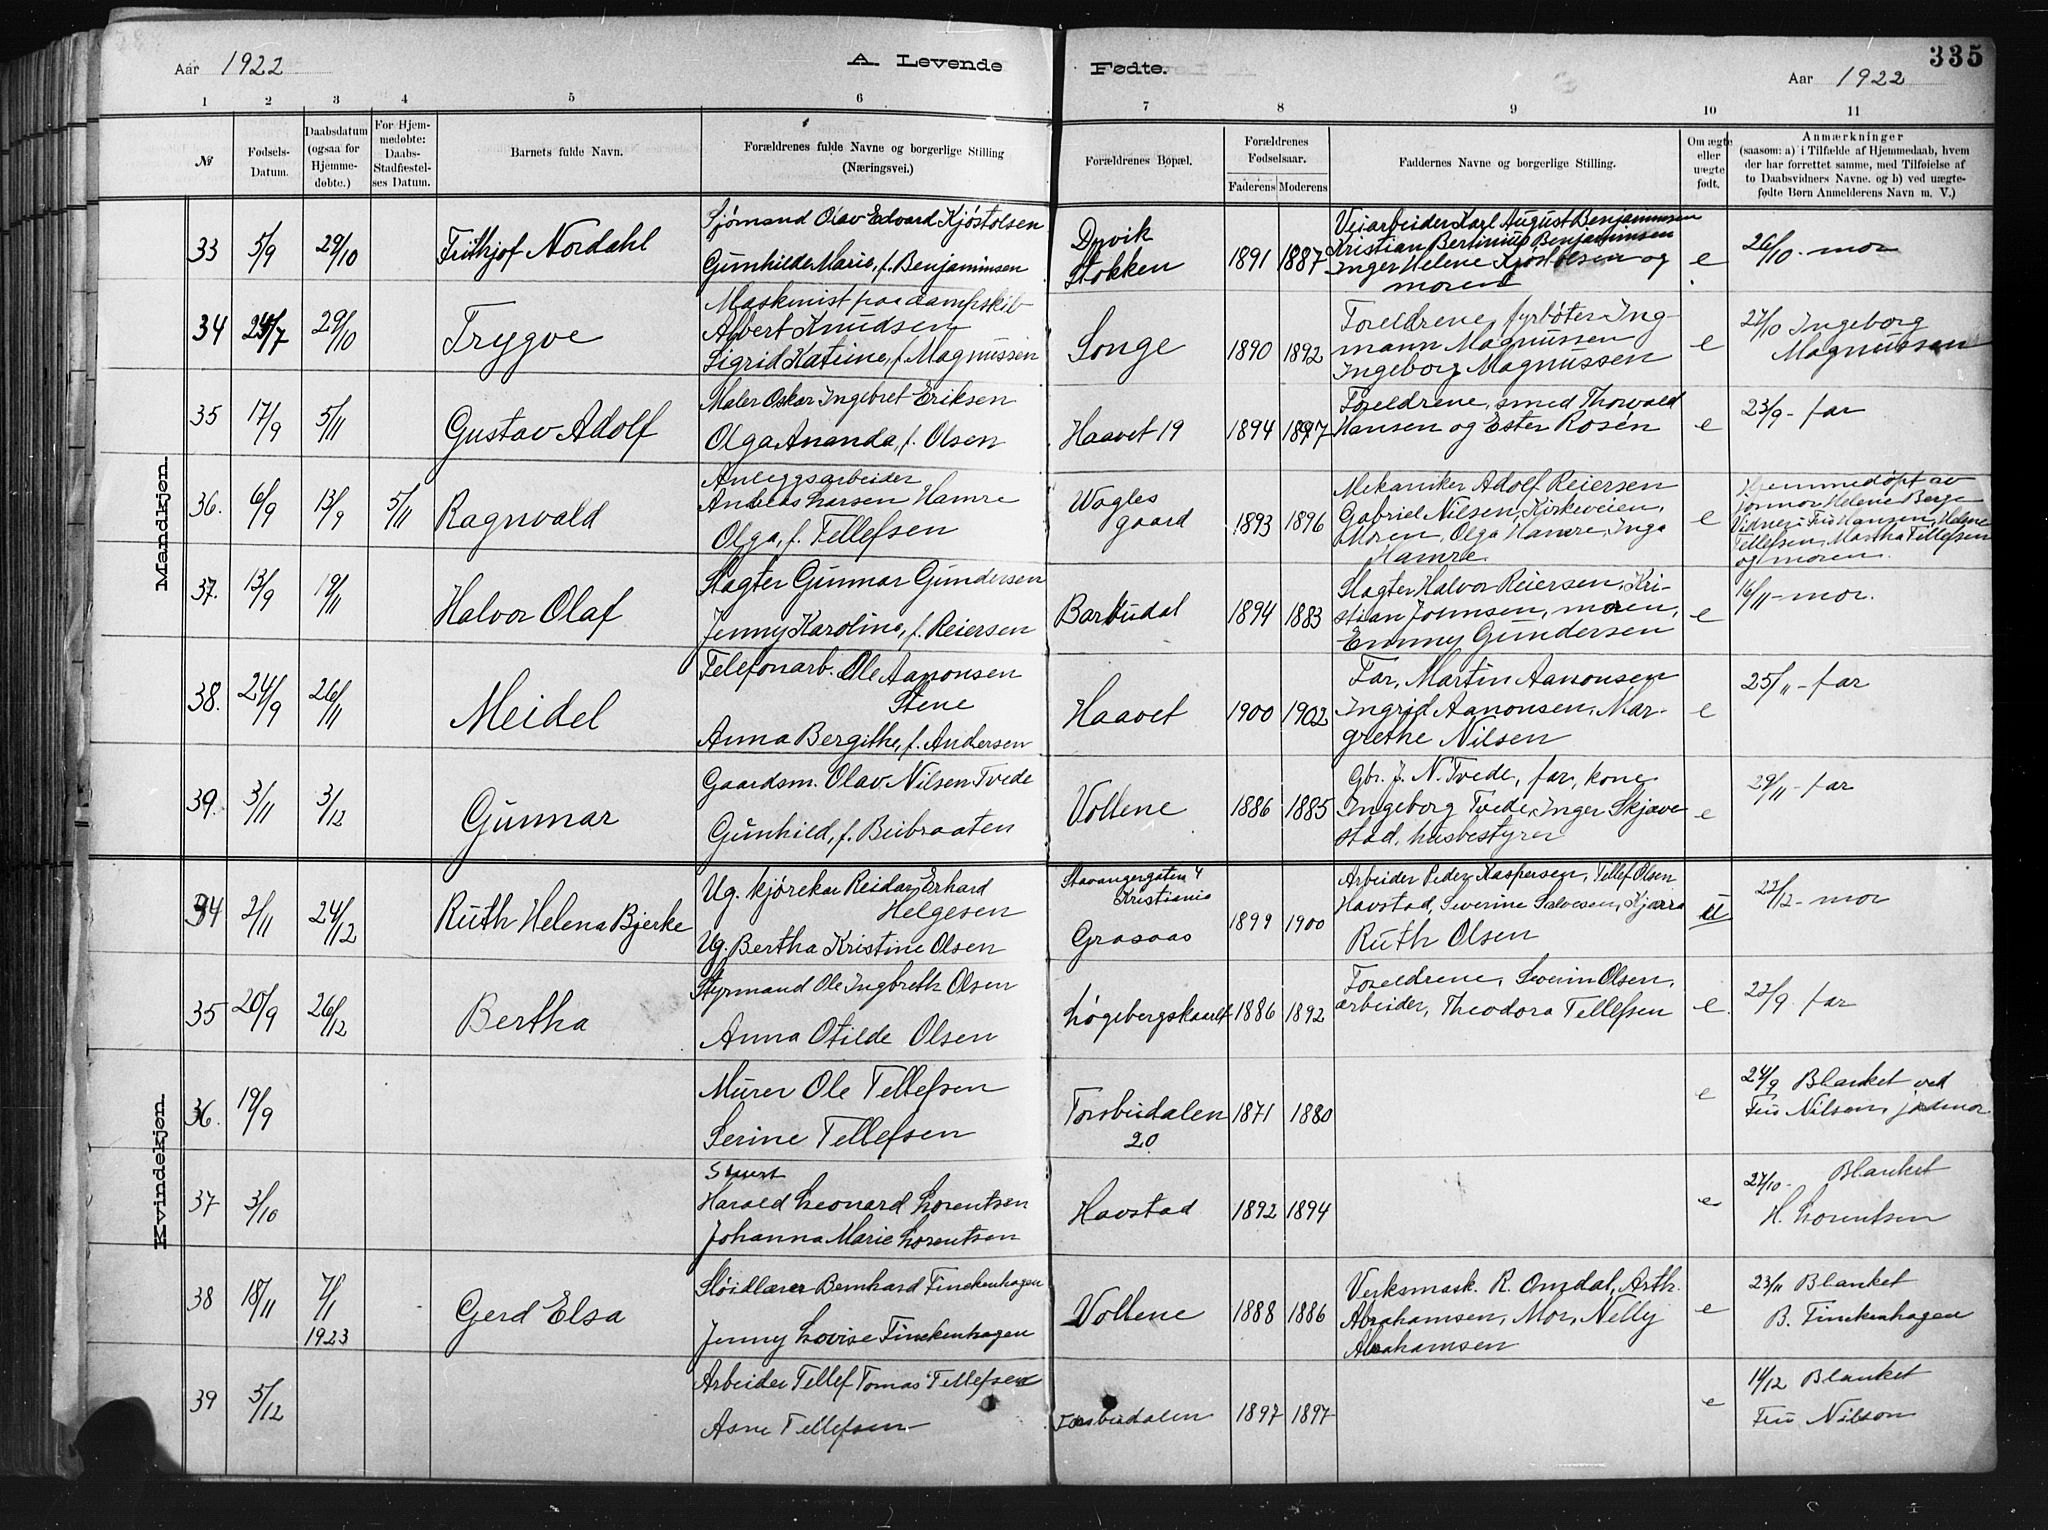 Aar 1922
A. Levende
Fødte.
335
Aar 1922
1 2 3 4 5 6 7 8 9 10 11
№
Fødsels-
Datum.
Daabsdatum
(ogsaa for
Hjemme-
døbte.)
For Hjem-
medøbte:
Daabs-
Stadfæstel-
ses Datum.
Barnets fulde Navn.
Forældrenes fulde Navne og borgerlige Stilling
(Næringsvei.)
Forældrenes Bopæl.
Forældrenes
Fødselsaar.
Faderens Moderens
Faddernes Navne og borgerlige Stilling.
Om ægte
eller
uægte
født.
Anmærkninger
(saasom: a) i Tilfælde af Hjemmedaab, hvem
der har forrettet samme, med Tilføielse af
to Daabsvidners Navne. og b) ved uægte-
fødte Børn Anmelderens Navn m. V.)
Mandkjøn.
33 5/9 29/10 Frithjof Nordahl
Sjømand Olav Edvard Kjøstolsen
Gunhilde Marie, f. Benjaminsen
Dyvik
Stokken
1891 1887
Veiarbeider Karl August Benjaminsen
Kristian Bertinius Benjaminsen
Inger Helene Kjøstolsen og
moren
e
26/10 - mor
34 25/7 29/10 Trygve
Maskinist paa dampskib
Albert Knudsen
Sigrid Katrine, f. Magnussen
Songe
1890 1892
Foreldrene, fyrbøter Ing-
mann Magnussen
Ingeborg Magnussen
e
27/10 Ingeborg
Magnussen
35 17/9 5/11 Gustav Adolf
Maler Oskar Ingebret Eriksen
Olga Ananda, f. Olsen
Haavet 19
1894 1897
Foreldrene, smed Thorvald
Hansen og Ester Rosén
e
23/9 - far
36. 6/9 13/9 5/11 Ragnvald
Anleggsarbeider
Andreas Larsen Hamre
Olga, f. Tellefsen
Wagles
gaard
1893 1896
Mekaniker Adolf Reiersen
Gabriel Nilsen, Kirkeveien,
Moren, Olga Hamre, Inga
Hamre
e
Hjemmedøpt av
jormor Helene Berge
Vidner: Fru Hansen, Helene
Tellefsen, Martha Tellefsen
og moren.
37. 13/9 19/11 Halvor Olaf
Slagter Gunnar Gundersen
Jenny Karoline, f. Reiersen
Barbudal
1894 1883
Slagter Halvor Reiersen, Kri-
stian Johnsen, moren,
Emmy Gundersen
e
16/11 - mor.
38. 24/9 26/11 Meidel
Telefonarb. Ole Aanonsen
Stene
Anna Bergithe, f. Andersen
Haavet
1900 1902
Far, Martin Aanonsen
Ingrid Aanonsen, Mar-
grethe Nilsen
e
25/11 - far
39. 3/11 3/12 Gunnar
Gaardsm. Olav Nilsen Tvede
Gunhild, f. Beibraaten
Vollene
1886 1885
Gbr. J. N. Tvede, far, kone
Ingeborg Tvede, Inger Skjæve
stad, husbestyrer
e
29/11 - far
Kvindekjøn.
34 2/11 24/12 Ruth Helena Bjerke
Ug. kjørekar Reidar Erhard
Helgesen
Ug. Bertha Kristine Olsen
Stavangergaten 4
Kristiania
Grasaas
1899 1900
Arbeider Peder Kaspersen, Tellef Olsen
Havstad, Severine Salvesen, Kjærra
Ruth Olsen
u
22/12 - mor
35 20/9 26/12 Bertha
Styrmand Ole Ingbreth Olsen
Anna Otilde Olsen
1886 1892
Foreldrene, Severin Olsen,
arbeider, Theodora Tellefsen
e.
22/9. far
36. 19/9
Murer Ole Tellefsen
Serine Tellefsen
Torsbudalen
20
1871 1880
e
24/9 Blanket ved
Fru Nilson, jodmor
37 3/10
Harald Leonard Lorentsen
Johanna Marie Lorentsen
Havstad
1892 1894
e
27/10 - Blanket
H. Lorentsen
38 18/11 7/1
1923
Gerd Elsa
Sløidlærer Bernhard Finckenhagen
Jenny Lovise Finckenhagen
Vollene
1888 1886
Verksmask. R. Omdal, Arth.
Abrahamsen, Mor, Nelly
Abrahamsen
e
23/11 Blanket
B. Finckenhagen
39 5/12
Arbeider Tellef Tomas Tellefsen
Asne Tellefsen
Torsbudalen
1897 1897
e
14/12 Blanket
Fru Nilson